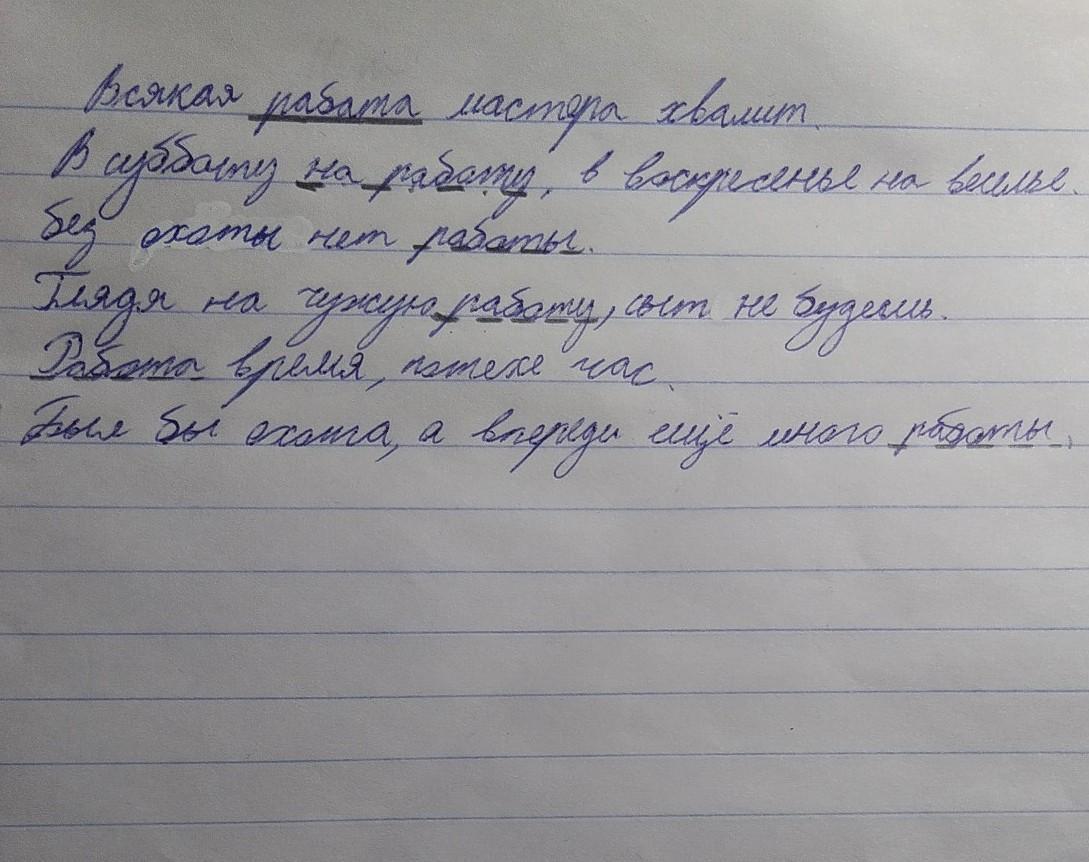 Всякая работа мастера хвалит.
В субботу на работу, в воскресенье на веселье.
без охоты нет работы.
Глядя на чужую работу, сыт не будешь.
Работа время, потехе час.
Был бы охота, а впереди ещё много работы.